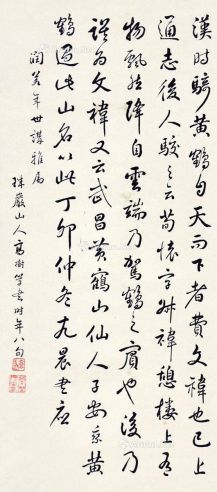 漢時騎黃鶴自天而下者費文禕也已上
通志後人駁之云荀懷字叔禕憩樓上有
物飄然降自雲端乃駕鶴之賓也後乃
誤為文禕又云武昌黃鶴山仙人子安乘黃
鶴過此山名以此丁卯仲冬九晨書應
潤若年世講雅屬
珠巖山人高樹 書時年八旬